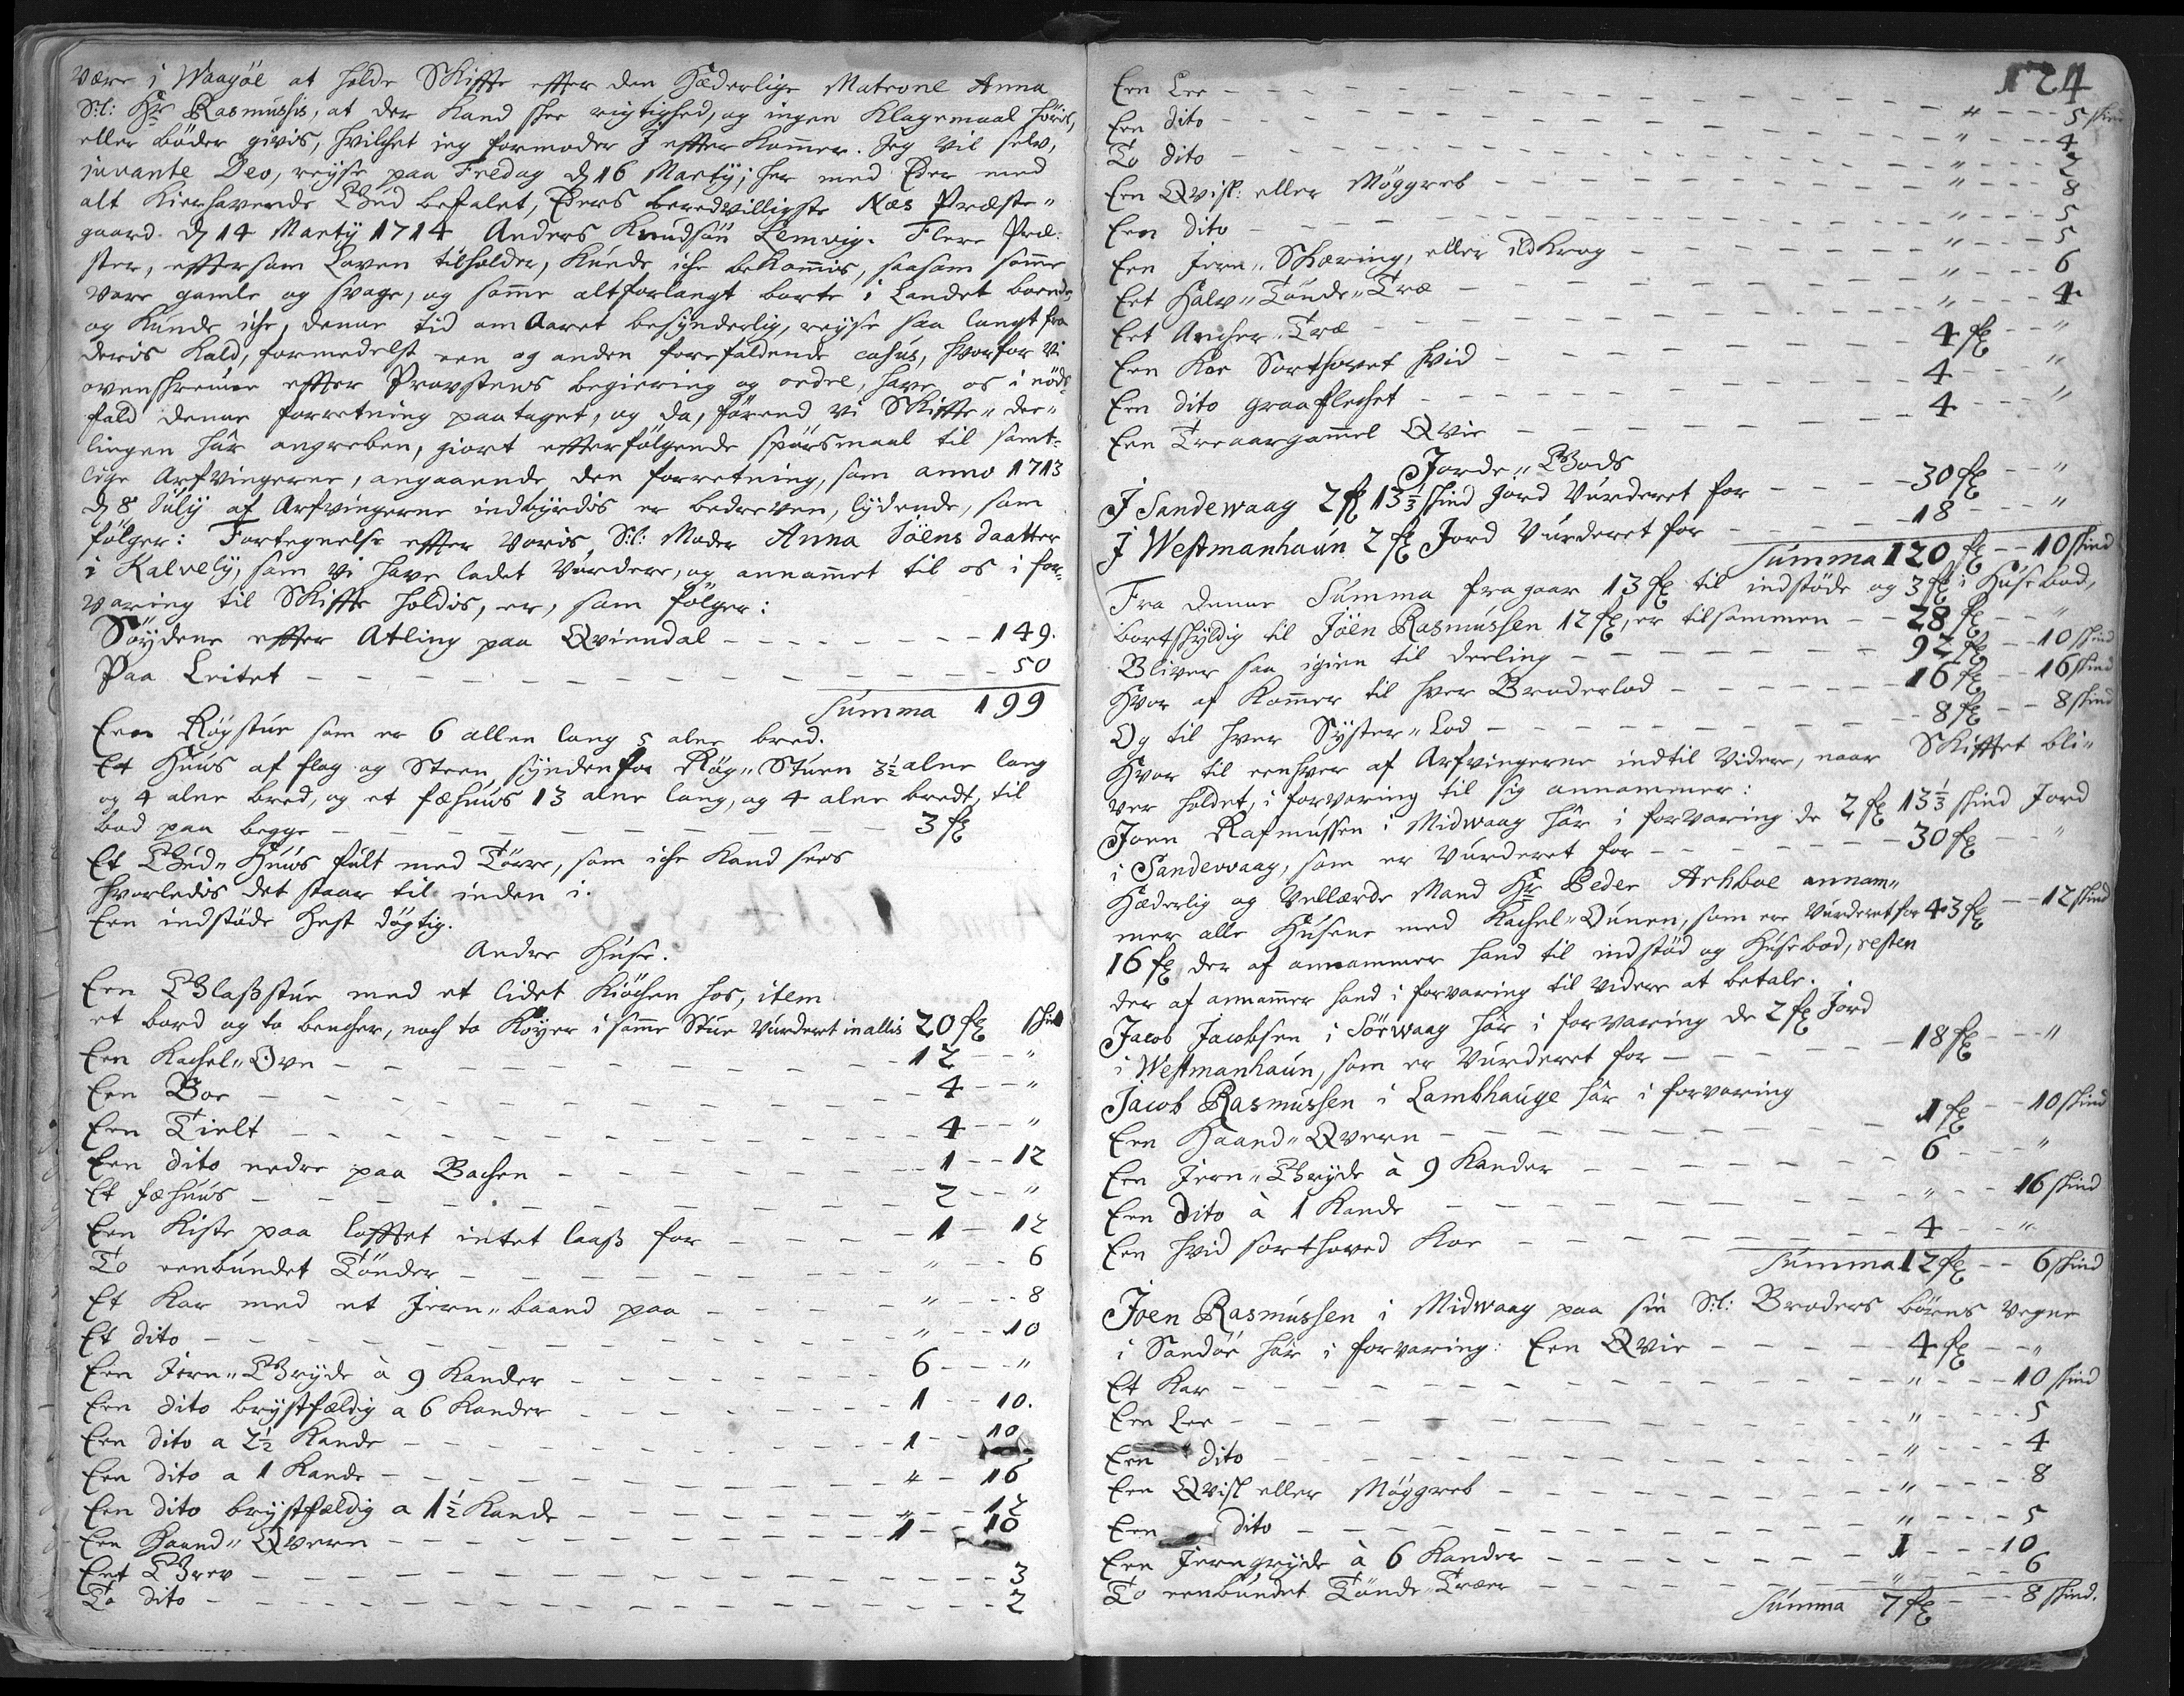 være i Waagöe at holde Skiffte effter den Hæderlige Matrone Anna
Sl: Hr Rasmussis, at der Kand skee rigtighed, og ingen Klagemaal höris,
eller böder givis, hvilchet ieg formoder I effterkommer. Jeg vil selv,
juvante Deo, reyse paa Fredag d 16 Marty; her med Eder med
alt Kierhavende Gud befalet, Eders beredvilligste Næs Præste"
gaard d 14 Marty 1714 Anders Knudsön Lemvig. Flere Præ:
ster, effter som Loven tilholder, Kunde iche bekommis, saasom somme
vare gamle og svage, og somme altforlangt borte i Landet boende,
og Kunde iche, denne tid om Aaret besynderlig, reyse saa langt fra
deris Kald, formedelst een og anden forefaldende casus, hvorfor vi
ovenskrevne effter Provstens begiering og ordre, have os i nöds
fald denne forretning paataget, og da, förend vi Skiffte" dee"
lingen här angreben, giort effterfölgende spörsmaal til samt-
lige Arfvingerne, angaaende den forretning, som anno 1713
d 8 July af Arfvingerne indbyrdis er bedreven, lydende, som
fölger: Fortegnelse effter voris Sl: Moder Anna Joens daatter
i Kalvely, som vi have ladet vurdere, og annammet til os i for-
varing til Skiffte holdis, er, som fölger:
Söydene effter Atling paa Qviendal - - - 149.
Paa Leitet - - - 50
Summa 199
Een Rögstue som er 6 allen lang 5 alne bred.
Et Huus af flag og Steen, synden for Rög" Stuen 3½ alne lang
og 4 alne bred, og et fæhuus 13 alne lang, og 4 alne bredt, til
bod paa begge - - - 3 fl
Et Gud" Huus fult med Törre, som iche Kand sees
hvorledis det staar til inden i.
Een indstöde Hest dögtig.
Andre Huse.
Een Glaßstue med et lidet Kiöchen hos, item
et bord og to bencher, noch to Köyer i samme Stue vurderet in allis 20 fl skind
Een Kachel" Ovn - - - 12 - - "
Een Boe - - - 4 - - "
Een Tielt - - - 4 - - "
Een dito nedre paa Bachen - - - 1 - - 12
Et fæhuus - - - 2 - - "
Een Kiste paa lofftet intet laaß for - - - 1 - 12
To eenbundet Tönder - - - " - - 6
Et Kar med et Jern" baand paa - - - " - - 8
Et dito - - - " - - 10
Een Jern" Gryde à 9 Kander - - - 6 - - "
Een dito bröstfældig a 6 Kander - - - 1 - - 10.
Een dito a 2½ Kande - - - 1 - - 10
Een dito a 1 Kande - - - " - 16
Een dito bröstfældig a 1½ Kande - - - " - - 12
Een Haand" Qvern - - - 1 - - 10
Eet Grev - - - 3
To dito - - - 2
174
Een Lee - - - " - - 5 skind
Een dito - - - " - - 4
To dito - - - " - - 2
Een Qvisl: eller Möggreb - - - " - - 8
Een dito - - - " - - 5
Een Jern" Skæring, eller ildkrog - - - " - - 5
Eet Halv" Tönde" Træ - - - " - - 6
Eet Ancher" Træ - - - " - - 4
Een Koe Sorthovet hvid - - - 4 fl - - "
Een dito graaflechet - - - 4 - - "
Een Treaargammel Qvie - - - 4 - - "
Jorde" Gods
I Sandewaag 2 fl 13⅓ skind Jord vurderet for - - - 30 fl - - "
I Westmanhaun 2 fl Jord vurderet for - - - 18 - - "
Summa 120 fl - - 10 skind
Fra denne Summa fragaar 13 fl til indstöde og 3 fl i Husebod,
bortskyldig til Joen Rasmussen 12 fl, er tilsammen - - 28 fl - - "
Bliver saa igien til deeling - - - 92 fl - - 10 skind
Hvor af Kommer til hver Broderlod - - - 16 fl - - 16 skind
Og til hver Syster" Lod - - - 8 fl - - 8 skind
Hvor til eenhver af Arfvingerne indtil videre, naar Skifftet bli"
ver holdet, i forvaring til sig annammer:
Joen Rasmussen i Midwaag här i forvaring de 2 fl 13⅓ skind Jord
i Sandevaag, som er vurderet for - - - 30 fl - - "
Hæderlig og vellærde Mand Hr Peder Arhboe annam"
mer alle Husene med Kachel" Ounen, som ere vurderet for 43 fl - - 12 skind
16 fl der af annammer hand til indstöd og Husebod, resten
der af annammer hand i forvaring til videre at betale.
Jacob Jacobsen i Sörwaag här i forvaring de 2 fl Jord
i Westmanhaun, som er vurderet for - - - 18 fl - - "
Jacob Rasmussen i Lambhauge här i forvaring
Een Haand" Qvern - - - 1 fl - - 10 skind
Een Jern" Gryde à 9 Kander - - - 6 - - "
Een dito à 1 Kande - - - " - - 16 skind
Een hvid sorthoved Koe - - - 4 - - "
Summa 12 fl - - 6 skind
Joen Rasmussen i Midwaag paa sin Sl: Broders börns vegne
i Sandöe här i forvaring: Een Qvie - - - 4 fl - - "
Et Kar - - - " - - 10 skind
Een Lee - - - " - - 5
Een dito - - - " - - 4
Een Qvisl eller Möggreb - - - " - - 8
Een dito - - - " - - 5
Een Jerngryde à 6 Kander - - - 1 - - 10
To eenbundet Tönde" Træer - - - " - - 6
Summa 7 fl - - 8 skind.